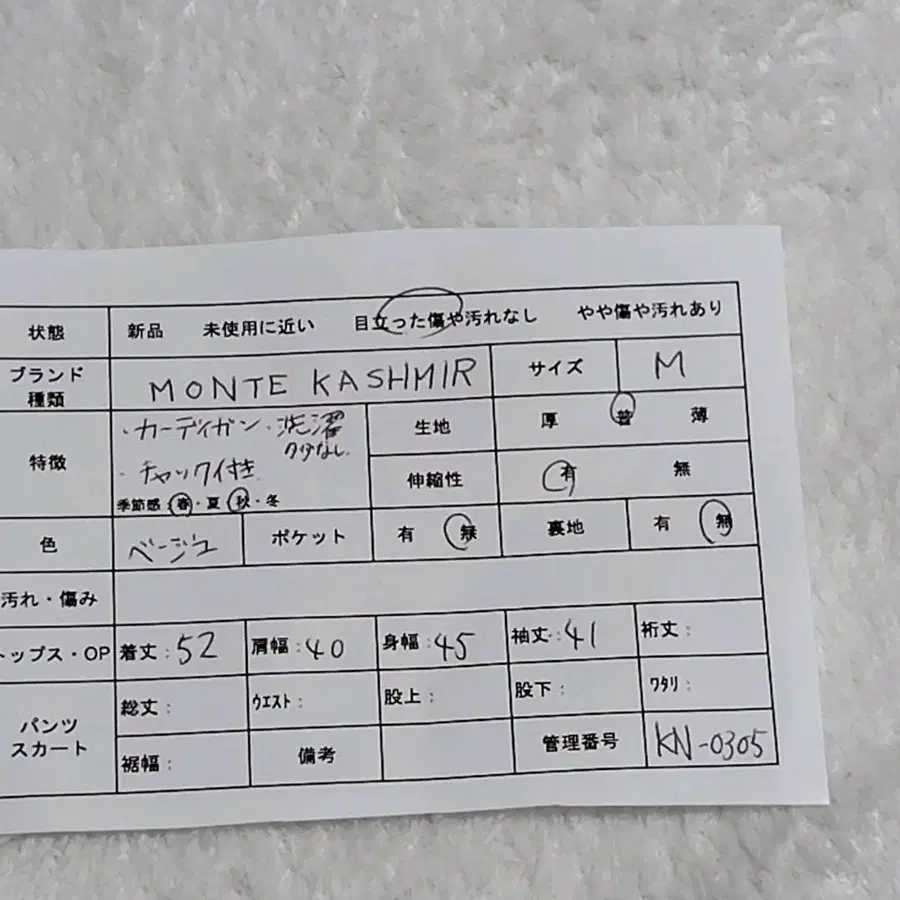 状態 新品 未使用に近い 目立った傷や汚れなし やや傷や汚れあり
ブランド 種類 MONTE KASHMIR サイズ M
特徴 ・カーディガン・洗濯タグなし。
・チャック付き
季節感 春・夏・秋・冬
生地 厚 普 薄
伸縮性 有 無
色 ベージュ ポケット 有 無 裏地 有 無
汚れ・傷み
トップス・OP 着丈:52 肩幅:40 身幅:45 袖丈:41 裄丈:
パンツ スカート 総丈: ウエスト: 股上: 股下: ワタリ:
裾幅: 備考 管理番号 KN-0305